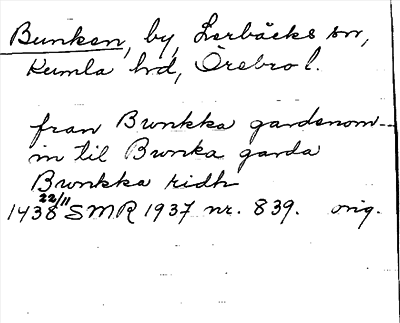 Bunken, by, Lerbäcks sn,
Kumla hd, Örebro l.
fran Brunkka gardenom
in til Brunka garda
Brunkka ridh
1438 22/11 SMR 1937 nr. 839. orig.